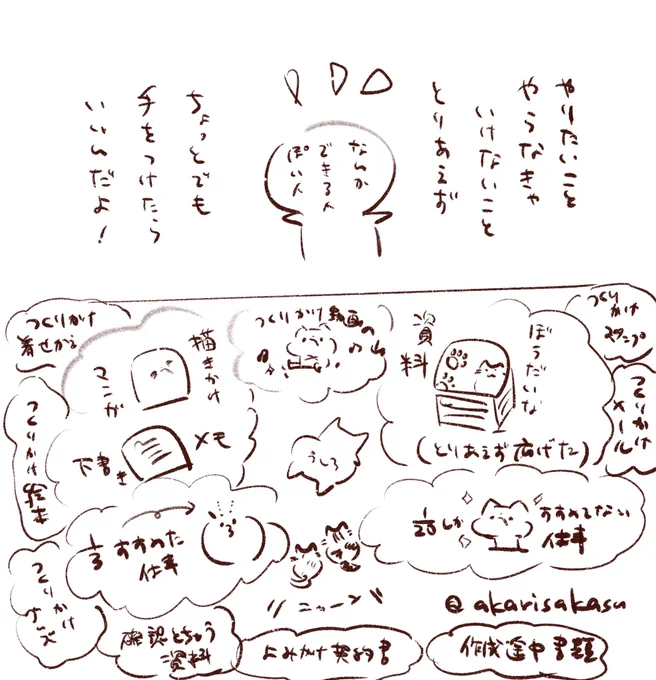 やりたいこと
やらなきゃ
いけないこと
とりあえず
なんか
できる人
ぽい人
ちょっとでも
手をつけたら
いいんだよ!
つくりかけ
スタンプ
つくりかけ
メール
ぼうだいな
資料
(とりあえず広げた)
つくりかけ動画の
山
描きかけ
マンガ
メモ
下書き
つくりかけ
着せかえ
つくりかけ絵本
うしろ
1/20しか
すすめてない
仕事
1/3すすめた
仕事
つくりかけ
グッズ
ニャーン
@akarisakasu
確認とちゅう
資料
よみかけ契約書
作成途中書類